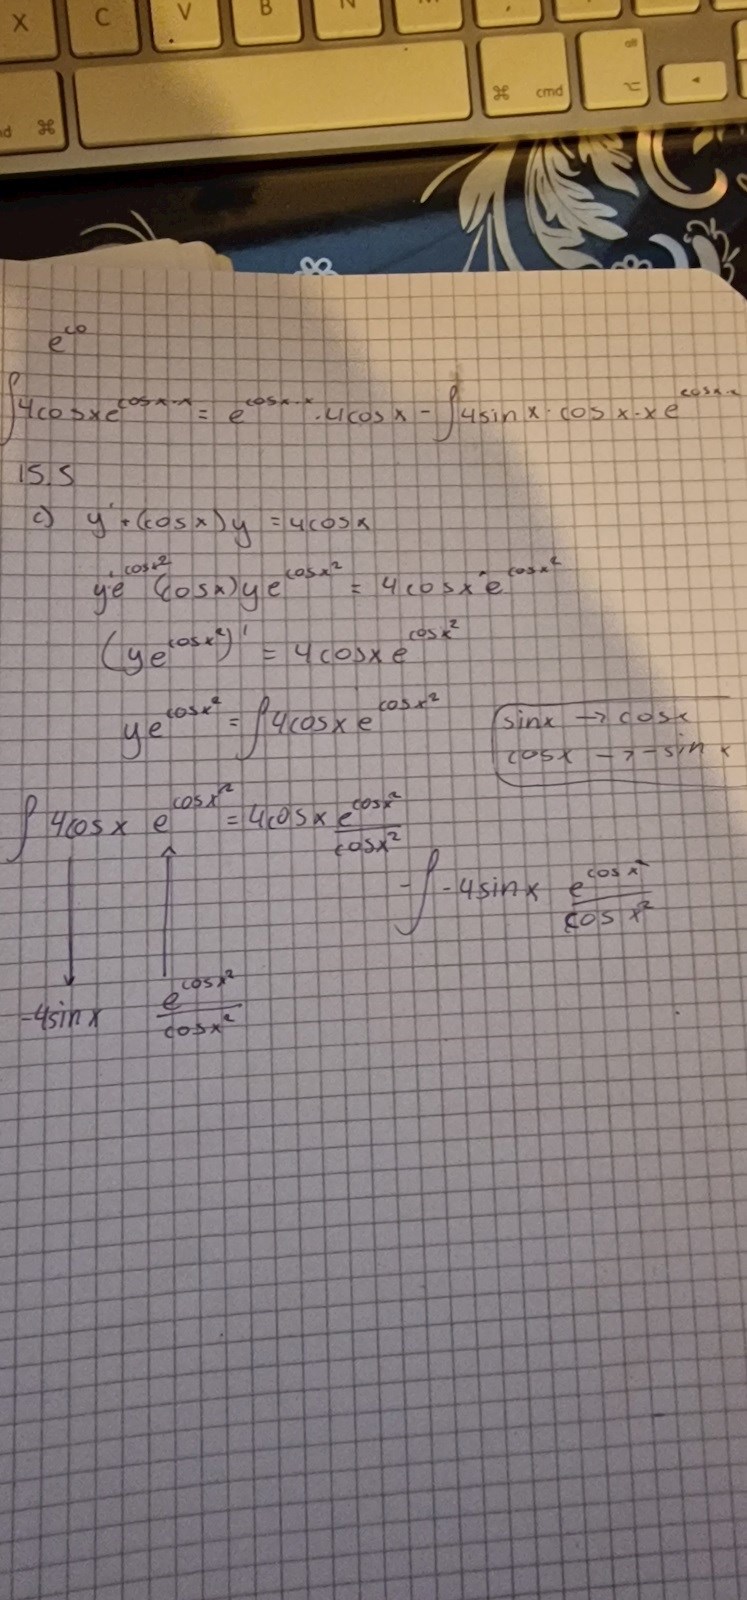 X C V B N M ,
⌘ cmd alt ⌥ ◄
⌘
e^co
∫4cosxe^cosx·x = e^cosx·x · 4cosx - ∫4sinx·cosx·xe^cosx·x
15.5
c) y' + (cosx)y = 4cosx
y'e^cosx² (cosx)ye^cosx² = 4cosx e^cosx²
(ye^cosx²)' = 4cosxe^cosx²
ye^cosx² = ∫4cosx e^cosx²
sinx → cosx
cosx → -sinx
∫4cosx e^cosx² = 4cosx e^cosx²/cosx²
-∫-4sinx e^cosx²/cosx²
-4sinx e^cosx²/cosx²